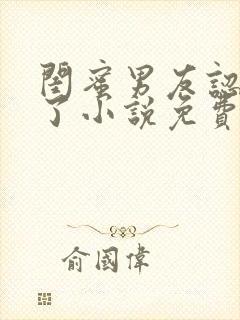 閨蜜男友認
了小說免費
俞國偉